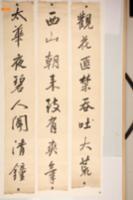 觀花匪禁吞吐大荒
西山朝來致有爽氣
太華夜碧人聞清鐘